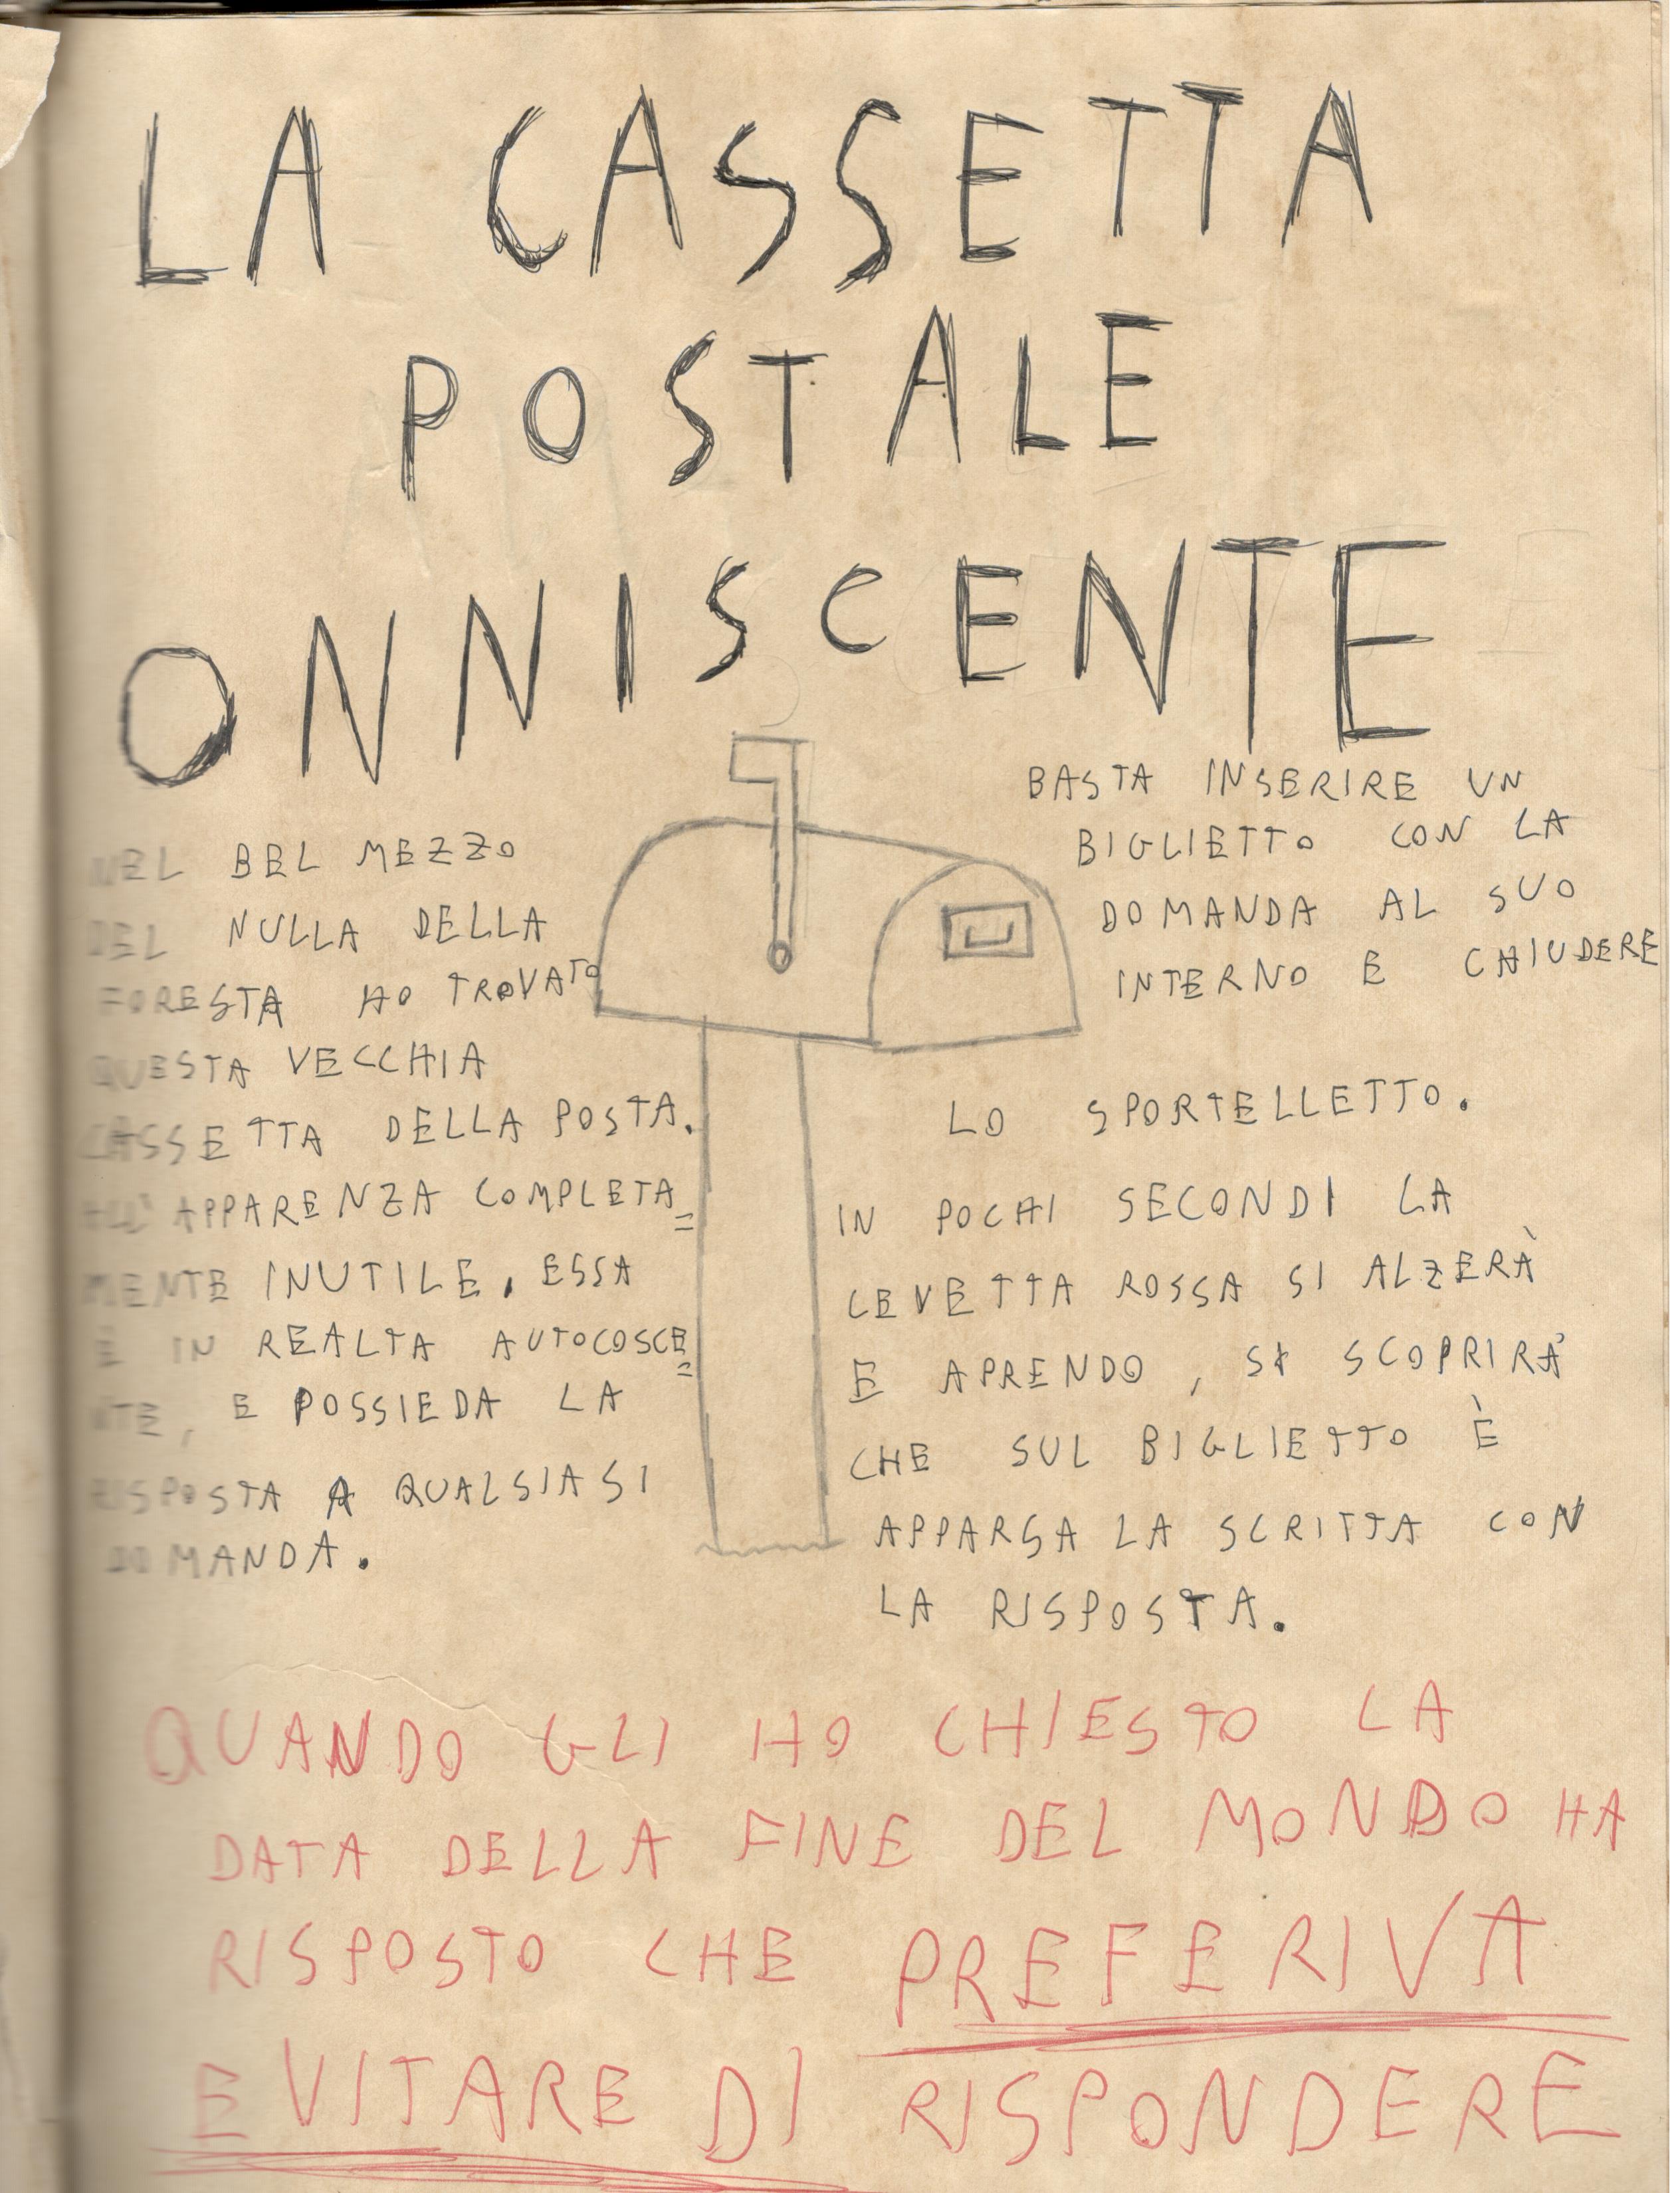 LA CASSETTA
POSTALE
ONNISCENTE
NEL BEL MEZZO
DEL NULLA DELLA
FORESTA HO TROVATO
QUESTA VECCHIA
CASSETTA DELLA POSTA.
ALL'APPARENZA COMPLETA=
MENTE INUTILE, ESSA
È IN REALTA AUTOCOSCE=
NTE, E POSSIEDA LA
RISPOSTA A QUALSIASI
DOMANDA.
BASTA INSERIRE UN
BIGLIETTO CON LA
DOMANDA AL SUO
INTERNO E CHIUDERE
LO SPORTELLETTO.
IN POCHI SECONDI LA
LEVETTA ROSSA SI ALZERÀ
E APRENDO, SI SCOPRIRÀ
CHE SUL BIGLIETTO È
APPARSA LA SCRITTA CON
LA RISPOSTA.
QUANDO GLI HO CHIESTO LA
DATA DELLA FINE DEL MONDO HA
RISPOSTO CHE PREFERIVA
EVITARE DI RISPONDERE